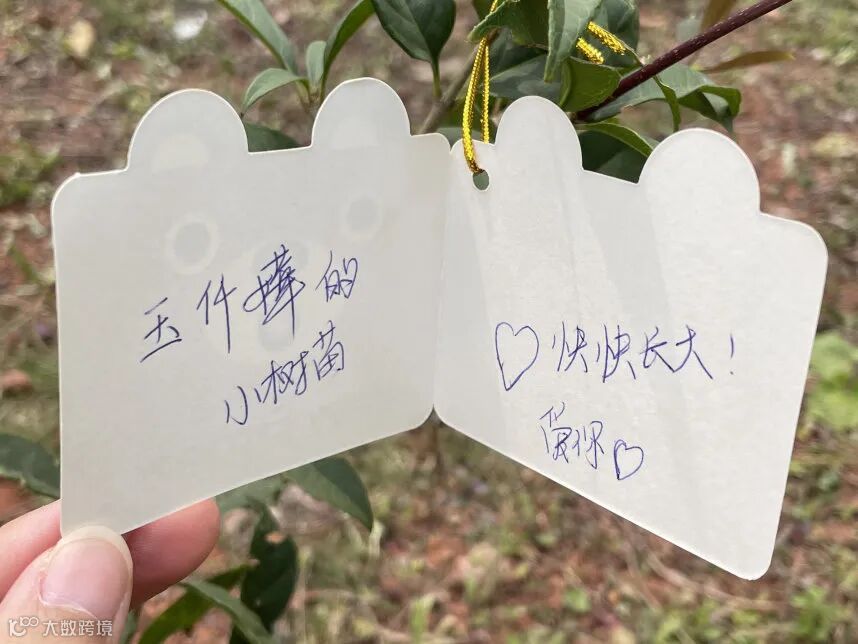 王仟嬅的
小树苗
♡快快长大！
爱你♡
大数跨境